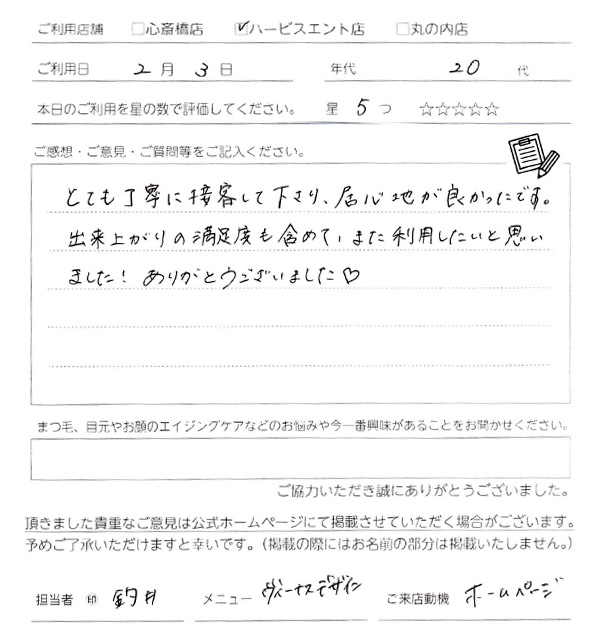 ご利用店舗 □心斎橋店 ☑ハービスエント店 □丸の内店
ご利用日 2月 3日 年代 20代
本日のご利用を星の数で評価してください。 星 5つ ☆☆☆☆☆
ご感想・ご意見・ご質問等をご記入ください。
とても丁寧に接客して下さり、居心地が良かったです。
出来上がりの満足度も含めて、また利用したいと思い
ました！ありがとうございました♡
まつ毛、目元やお顔のエイジングケアなどのお悩みや今一番興味があることをお聞かせください。
ご協力いただき誠にありがとうございました。
頂きました貴重なご意見は公式ホームページにて掲載させていただく場合がございます。
予めご了承いただけますと幸いです。（掲載の際にはお名前の部分は掲載いたしません。）
担当者 印 釣井 メニュー ヴィーナスデザイン ご来店動機 ホームページ